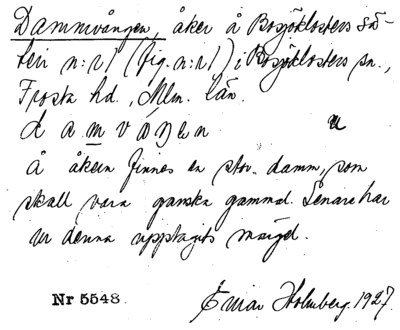 Dammvången, åker å Bosjöklosters sä-
teri n:r 1 (fig. n:r 1) i Bosjöklosters sn.,
Frosta hd., Mlm. län.
damvåŋen
Å åkern finnes en stor damm, som
skall vara ganska gammal. Senare har
ur denna upptagits märgel.
Nr 5548. Einar Holmberg. 1927.